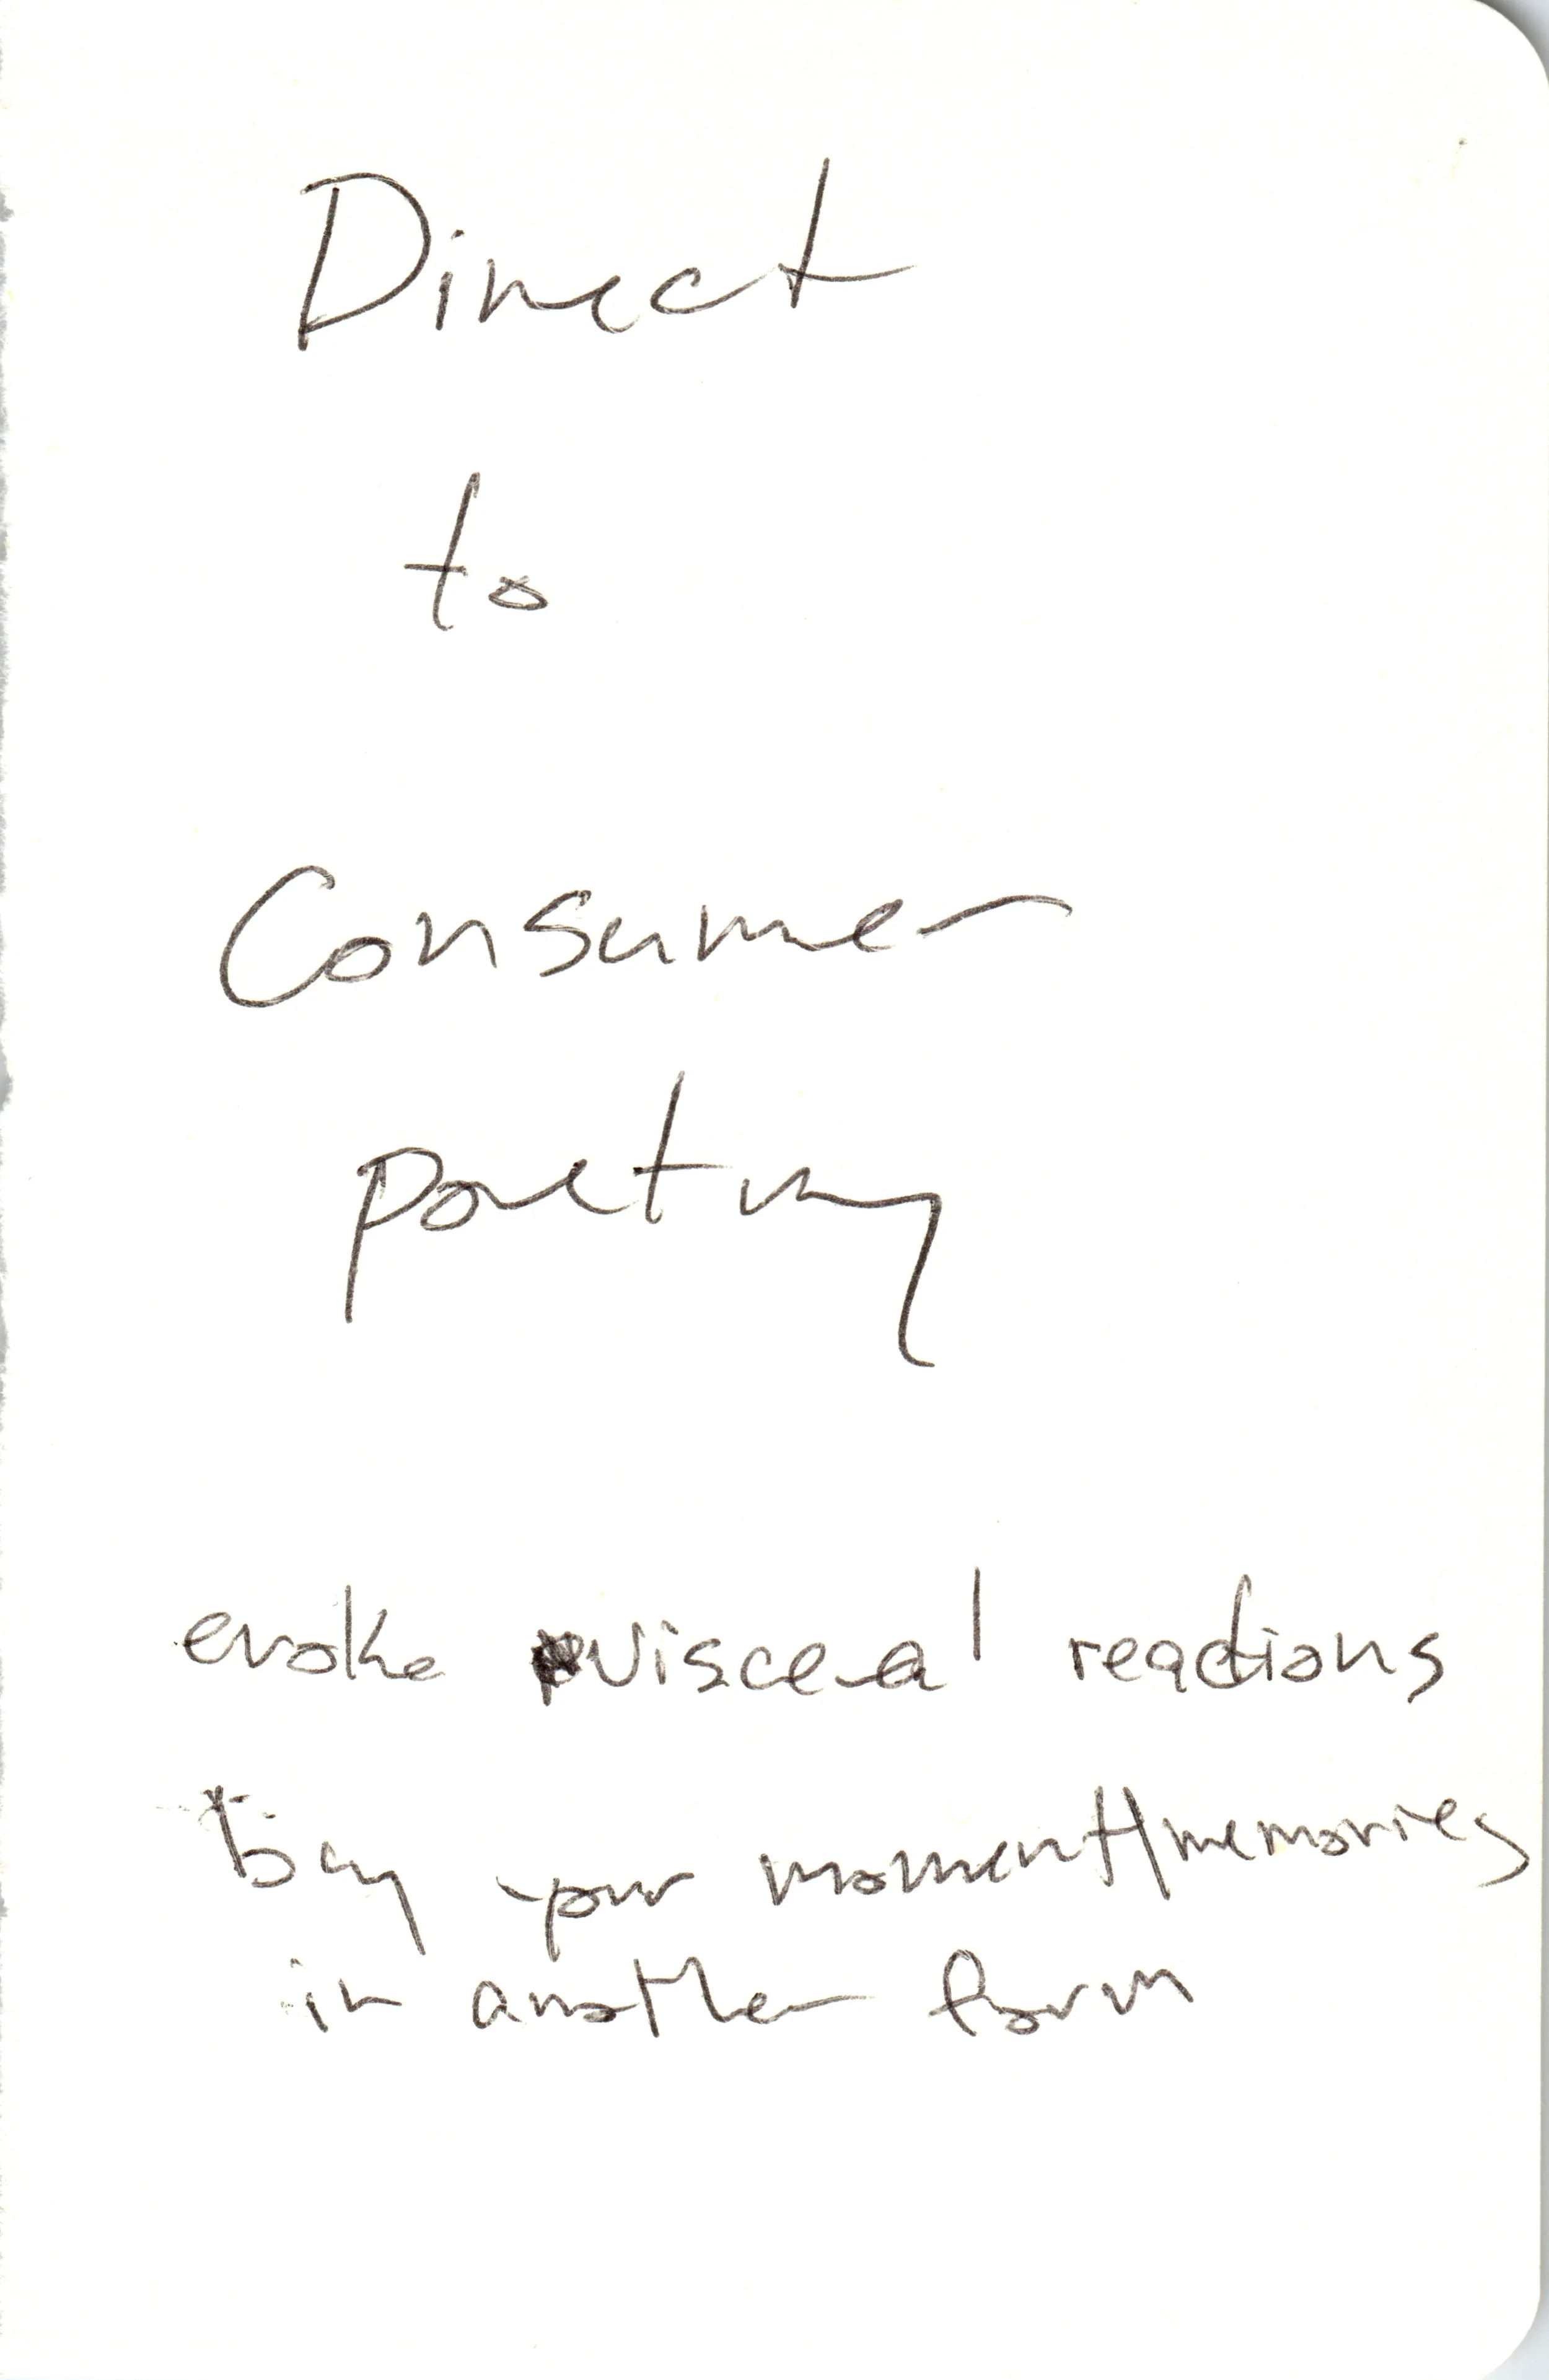 Direct
to
Consumer
poetry
evoke visceral reactions
buy your moment/memories
in another form